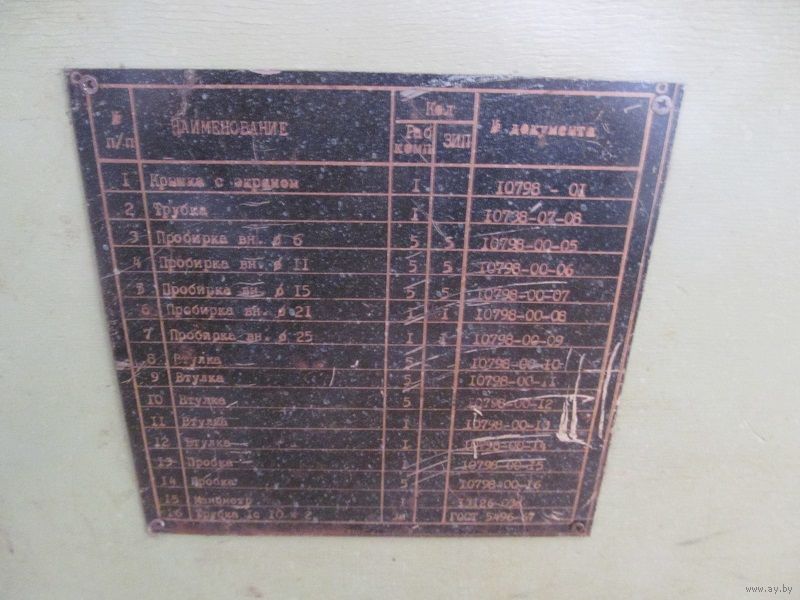 № п/п НАИМЕНОВАНИЕ Кол № документа
Раб комп ЗИП
1 Крышка с экраном 1 10798 - 01
2 Трубка 1 10738-07-08
3 Пробирка вн. ø 6 5 5 10798-00-05
4 Пробирка вн. ø 11 5 5 10798-00-06
5 Пробирка вн. ø 15 5 5 10798-00-07
6 Пробирка вн. ø 21 1 1 10798-00-08
7 Пробирка вн. ø 25 1 1 10798-00-09
8 Втулка 5 10798-00-10
9 Втулка 5 10798-00-11
10 Втулка 5 10798-00-12
11 Втулка 1
12 Втулка 1
13 Пробка 1 10798-00-15
14 Пробка 5 10798-00-16
15 Манометр 1
16 Трубка 1с 10 2 ГОСТ 5496-67
www.ay.by